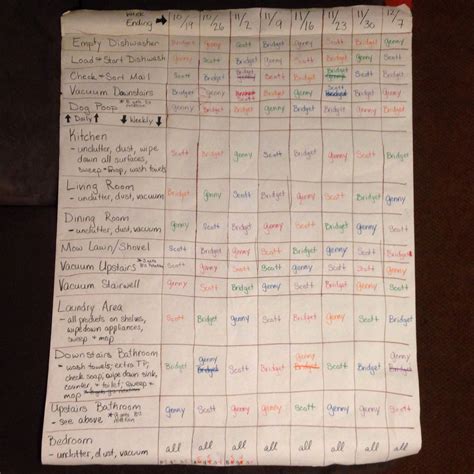 Week Ending → 10/19 10/26 11/2 11/9 11/16 11/23 11/30 12/7
Empty Dishwasher Bridget Genny Scott Bridget Genny Scott Bridget Genny
Load + Start Dishwash Genny Scott Bridget Genny Scott Bridget Genny Scott
Check + Sort Mail Scott Bridget Scott Bridget Scott Bridget
Vacuum Downstairs Bridget Genny Scott Bridget Genny Bridget Genny
Dog Poop Genny Bridget Genny Bridget Genny Bridget Genny Bridget
↑ Daily ↑ ↓ Weekly ↓
Kitchen
- unclutter, dust, wipe
down all surfaces, Scott Bridget genny Scott Bridget genny Scott Bridget
sweep + mop, wash towels
Living Room
- unclutter, dust, vacuum Bridget genny Scott Bridget genny Scott Bridget genny
Dining Room
- unclutter, dust, vacuum genny Scott Bridget genny Scott Bridget genny Scott
Mow Lawn/Shovel Scott Bridget genny Scott Bridget genny Scott Bridget
Vacuum Upstairs Scott genny Scott genny Scott genny Scott genny
Vacuum Stairwell Genny Scott Bridget genny Scott Bridget genny Scott
Laundry Area
- all products on shelves, Scott Bridget genny Scott Bridget genny Scott Bridget
wipedown appliances,
sweep + mop
Downstairs Bathroom
- wash towels, extra TP, Bridget genny Bridget Scott Bridget genny Scott Bridget genny
check soap, wipe down sink,
counter, + toilet, sweep +
mop
Upstairs Bathroom genny Scott genny Scott genny Scott genny Scott
- see above
Bedroom
- unclutter, dust, vacuum all all all all all all all all